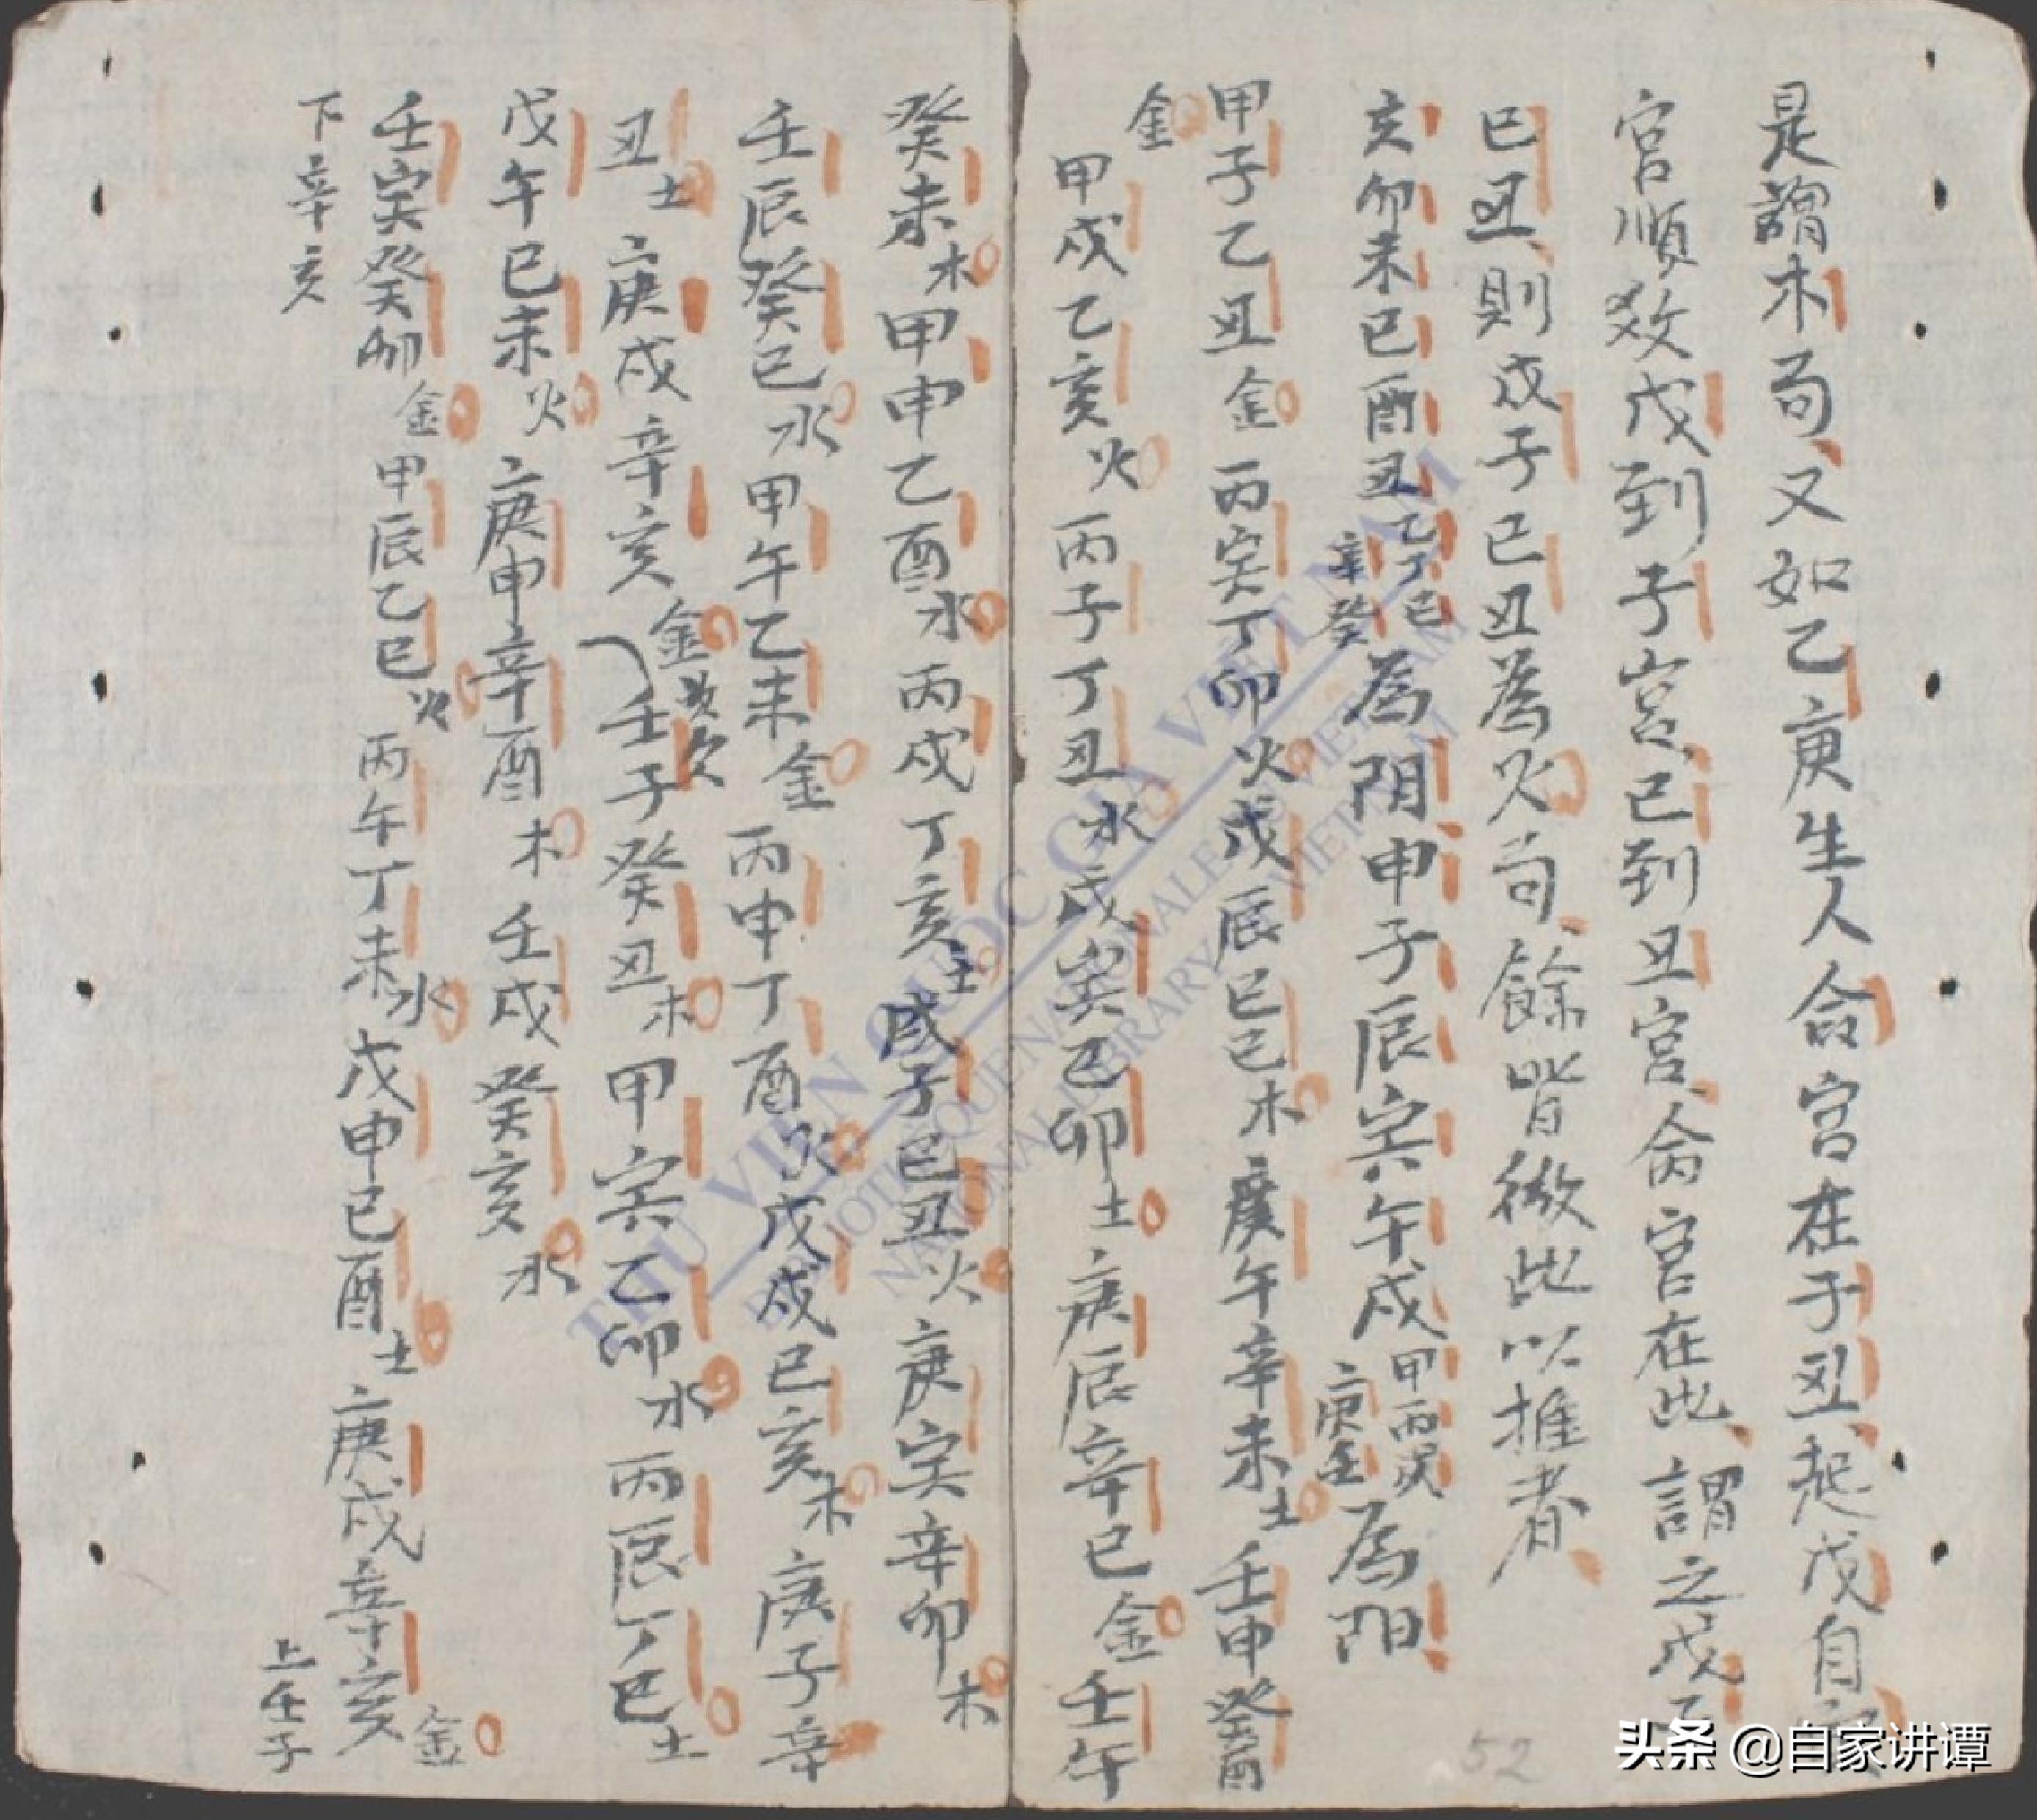 是謂木局又如乙庚生人命宮在子丑起戊自寅
宮順数戊到子宮己到丑宮命宮在此謂之戊子
己丑則戊子己丑為火局餘皆倣此以推者
亥卯未巳酉丑乙丁己辛癸為阴申子辰寅午戌甲丙戊庚壬為阳
甲子乙丑金丙寅丁卯火戊辰己巳木庚午辛未土壬申癸酉
金
甲戌乙亥火丙子丁丑水戊寅己卯土庚辰辛巳金壬午
癸未木甲申乙酉水丙戌丁亥土戊子己丑火庚寅辛卯木
壬辰癸巳水甲午乙未金丙申丁酉火戊戌己亥木庚子辛
丑土庚戌辛亥金壬子癸丑木甲寅乙卯水丙辰丁巳土
戊午己未火庚申辛酉木壬戌癸亥水
壬寅癸卯金甲辰乙巳火丙午丁未水戊申己酉土庚戌辛亥金
下辛亥
上壬子
THU VIEN QUOC GIA VIET NAM
BIBLIOTHEQUE NATIONALE DU VIETNAM
NATIONAL LIBRARY OF VIETNAM
52
头条 @自家讲谭